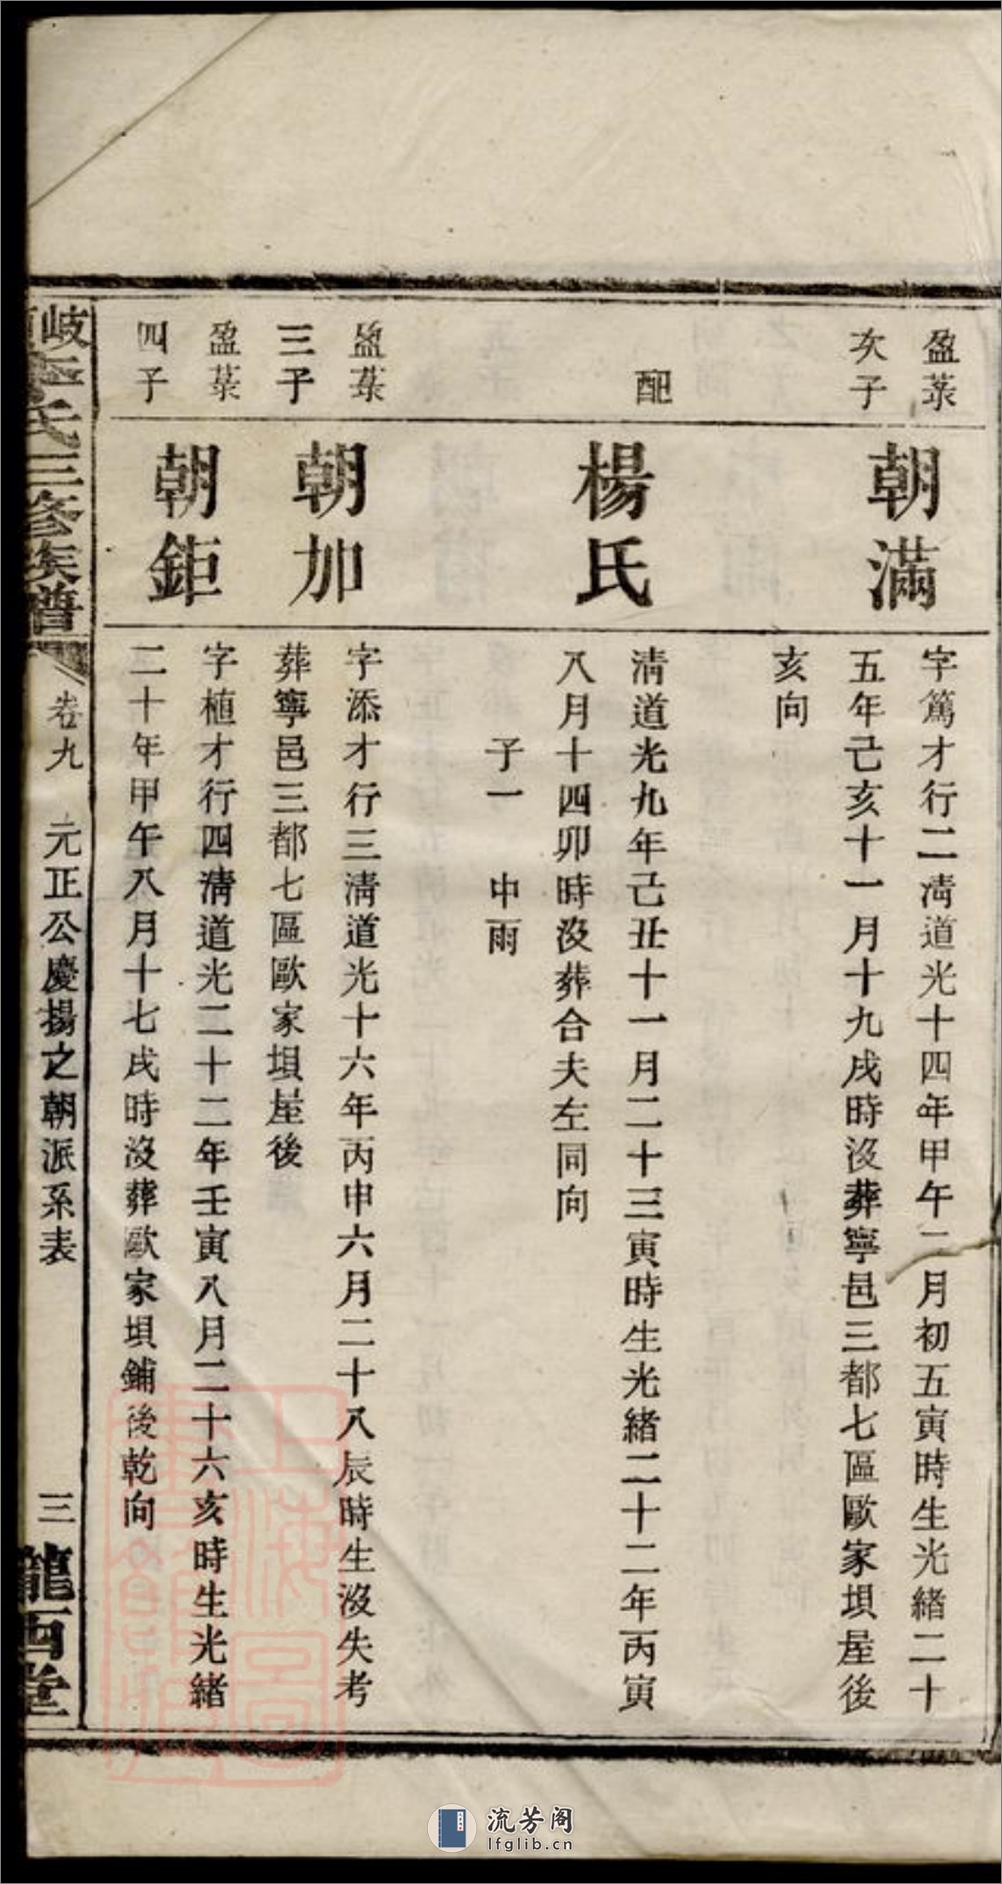 盈菉
次子
朝滿
字篤才行二淸道光十四年甲午二月初五寅時生光緒二十
五年己亥十一月十九戌時沒葬寧邑三都七區歐家垻屋後
亥向
配
楊氏
淸道光九年己丑十一月二十三寅時生光緒二十二年丙寅
八月十四卯時沒葬合夫左同向
子一 中雨
盈菉
三子
朝加
字添才行三淸道光十六年丙申六月二十八辰時生沒失考
葬寧邑三都七區歐家垻屋後
盈菉
四子
朝鉅
字植才行四淸道光二十二年壬寅八月二十六亥時生光緒
二十年甲午八月十七戌時沒葬歐家垻鋪後乾向
岐李氏三修族譜
卷九 元正公慶揚之朝派系表
三
龍西堂
上海圖書館藏
流芳阁
lfglib.cn